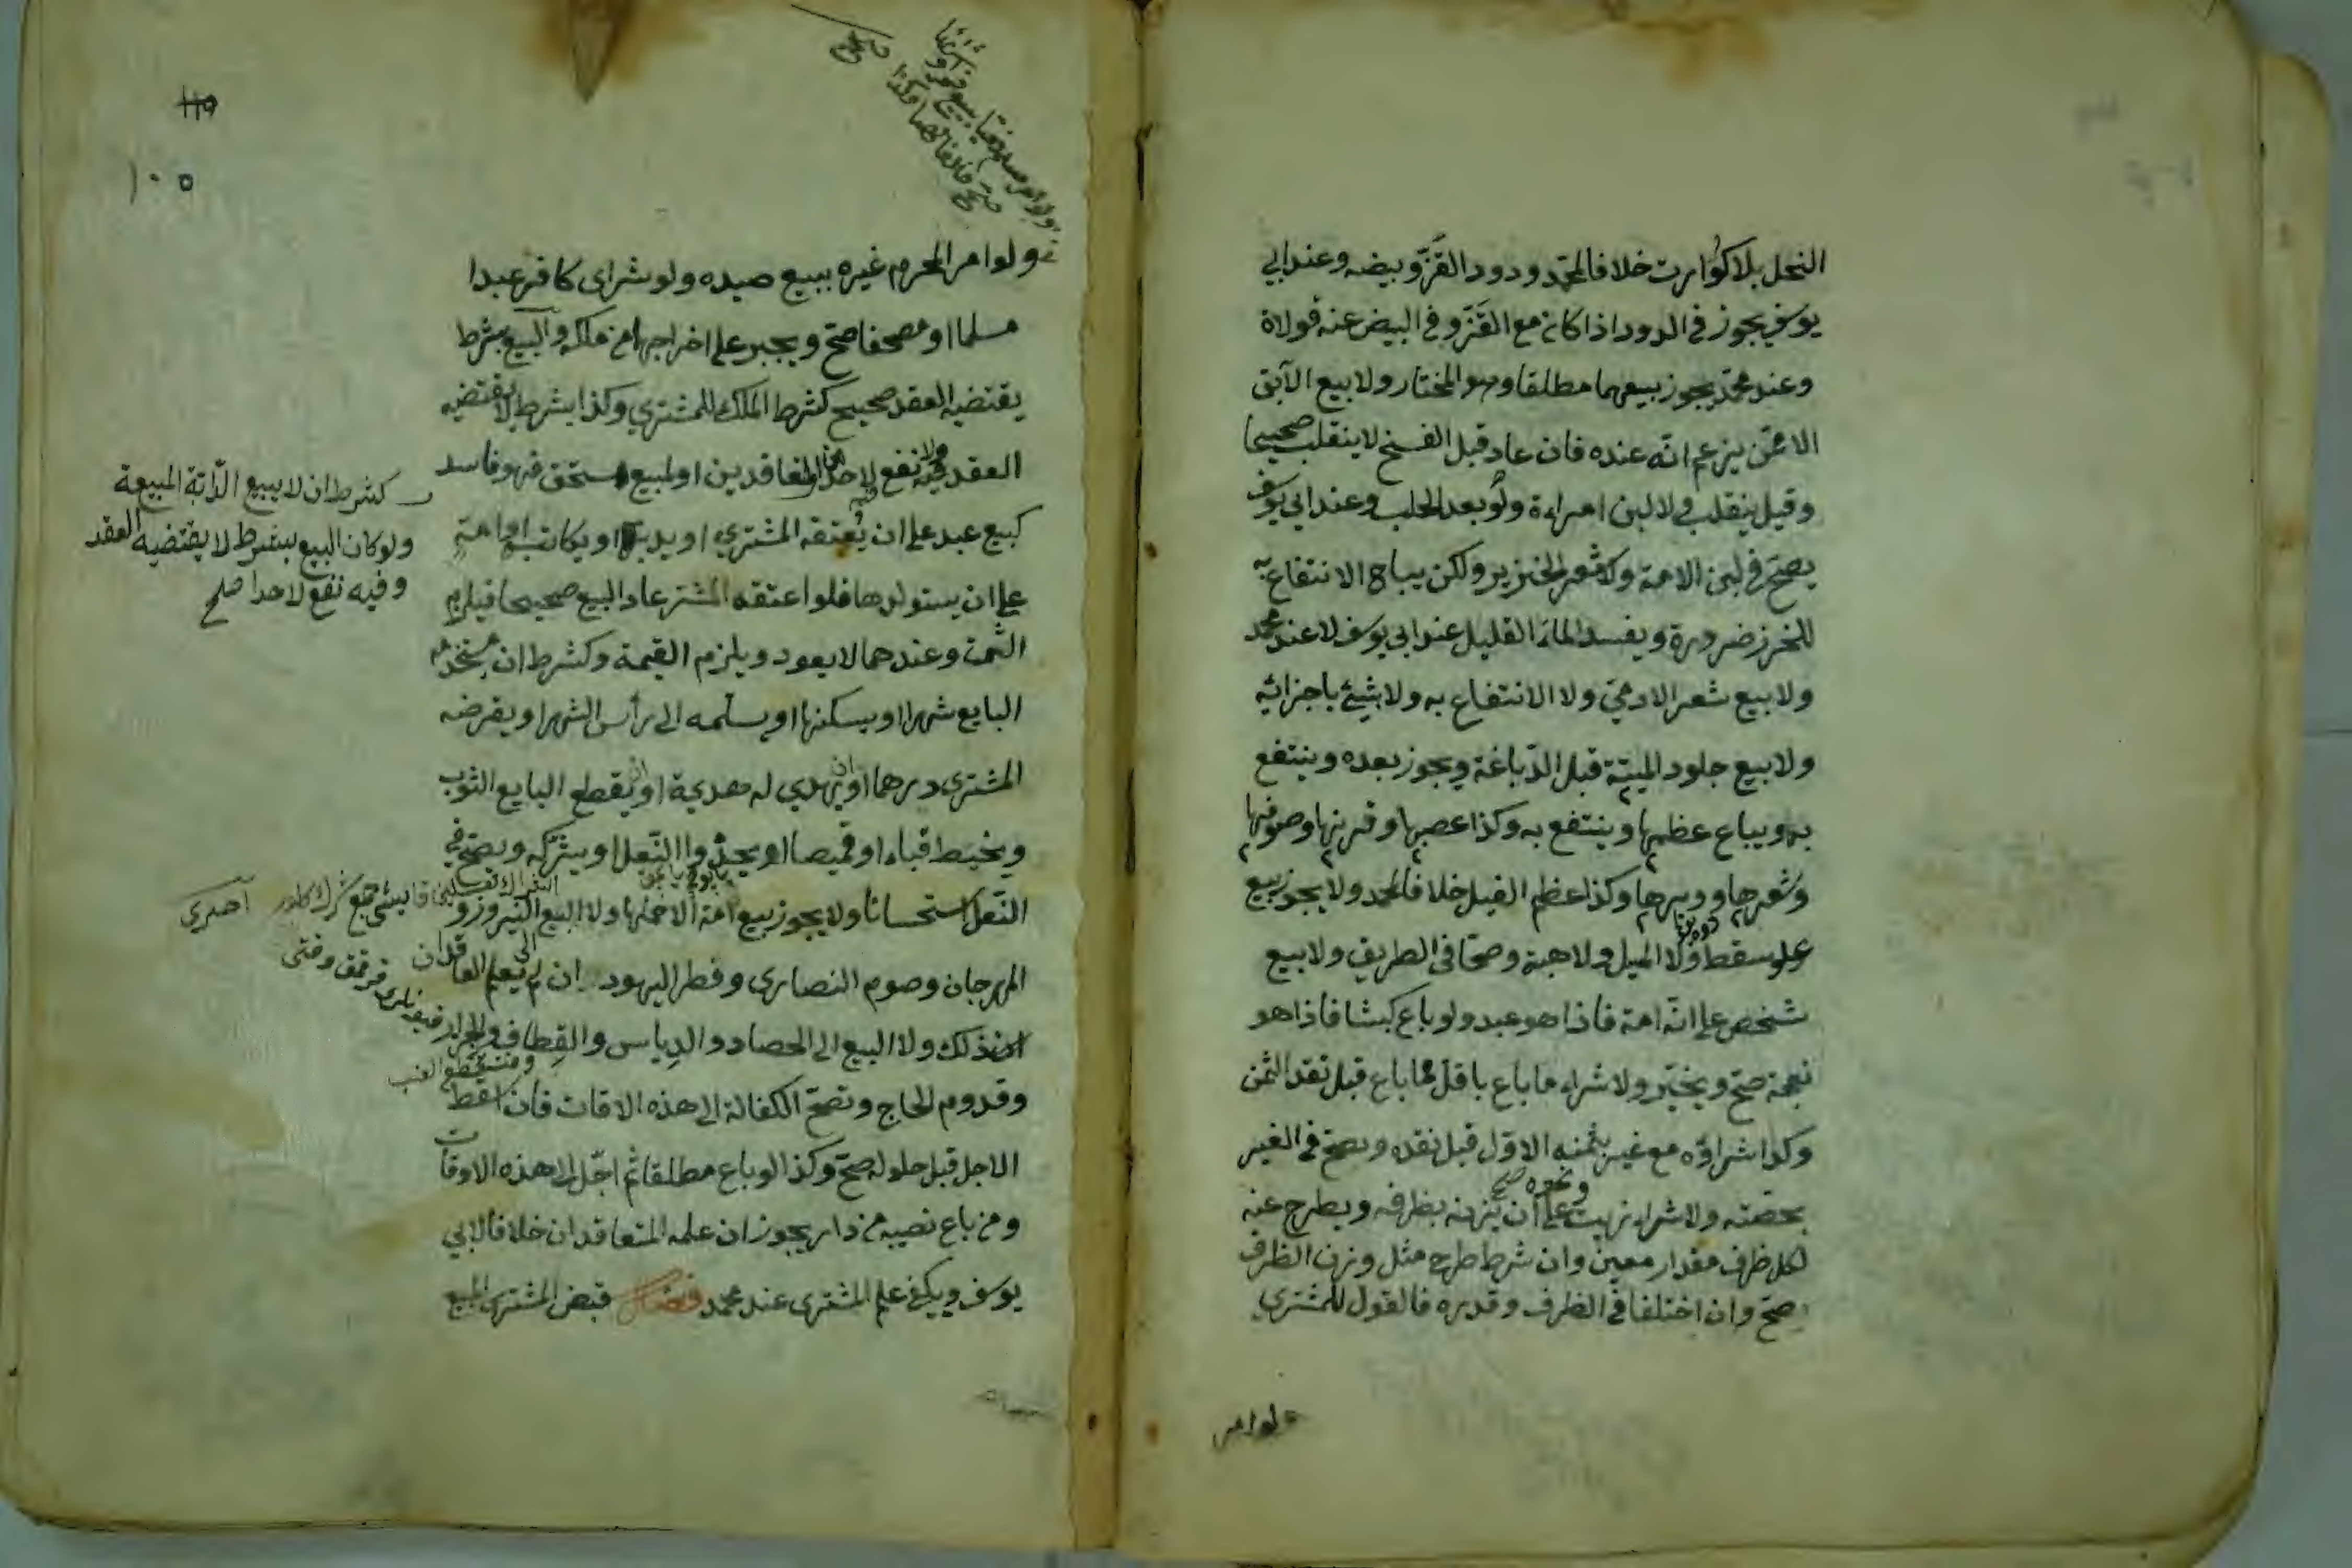 النحل بلا كوارت خلافا لمحمد ودود القز وبيضه وعند ابي
يوسف يجوز في الدود اذا كان مع القز وفي البيض عنه قولان
وعند محمد يجوز بيعهما مطلقا وهو المختار ولا بيع الآبق
الا ممن يزعم انه عنده فان عاد قبل الفسخ لا ينقلب صحيحا
وقيل ينقلب ولا لبن امراءة ولو بعد الحلب وعند ابي يوسف
يصح في لبن الامة ولا شعر الخنزير ولكن يباح الانتفاع به
للخرز ضرورة ويفسد الماء القليل عند ابي يوسف لا عند محمد
ولا بيع شعر الادمي ولا الانتفاع به ولا بشيئ باجزائه
ولا بيع جلود الميتة قبل الدباغة ويجوز بعده وينتفع
به ويباع عظمها وينتفع به وكذا عصبها وقرنها وصوفها
وشعرها ووبرها وكذا عظم الفيل خلافا لمحمد ولا يجوز بيع
علو سقط ولا المسيل ولا هبته وصحا في الطريق ولا بيع
شخص على انه امة فاذا هو عبد ولو باع كبشا فاذا هو
نعجة صح ويخير ولا شراء ما باع باقل مما باع قبل نقد الثمن
وكذا شراؤه مع غيره بثمنه الاول قبل نقده وصح في الغير
بحصته ولا شراء زيت على ان يزنه بظرفه ويطرح عنه
ونحوه صح
لكل ظرف مقدار معين وان شرط طرح مثل وزن الظرف
صح وان اختلفا في الظرف وقدره فالقول للمشتري
ولو امر
ولو امر المحرم غيره ببيع صيده ولو شرى كافر عبدا
مسلما او مصحفا صح ويجبر على اخراجهما من ملكه والبيع بشرط
يقتضيه العقد صحيح كشرط الملك للمشتري وكذا بشرط لا يقتضيه
العقد ولا نفع لاحد المتعاقدين او لمبيع يستحق فهو فاسد
كبيع عبد على ان يعتقه المشتري او يدبره او يكاتبه او امة
على ان يستولدها فلو اعتقه المشتر عاد البيع صحيحا فيلزم
الثمن وعندهما لا يعود ويلزم القيمة وكشرط ان يستخدمه
البايع شهرا او يسكنها او يسلمه الى رأس الشهر او يقرضه
المشتري درهما او ان يهدي له هدية او ان يقطع البايع الثوب
ويخيط قباء او قميصا او يحذو النعل او يشركه وصح في
النعل استحسانا ولا يجوز بيع امة الا حملها ولا البيع الى النيروز و
المهرجان وصوم النصارى وفطر اليهود ان لم يعلم العاقدان
ذلك ولا البيع الى الحصاد والدياس والقطاف والجزاز
وقدوم الحاج وتصح الكفالة الى هذه الاقات فان اسقط
الاجل قبل حلوله صح وكذا لو باع مطلقا ثم اجل الى هذه الاوقات
ومن باع نصيبه من دار يجوز ان علمه المتعاقدان خلافا لابي
يوسف ويكفي علم المشتري عند محمد فصل قبض المشتري المبيع
كشرط ان لا يبيع الدابة المبيعة
ولو كان البيع بشرط لا يقتضيه العقد
وفيه نفع لاحد صح
١٠٥